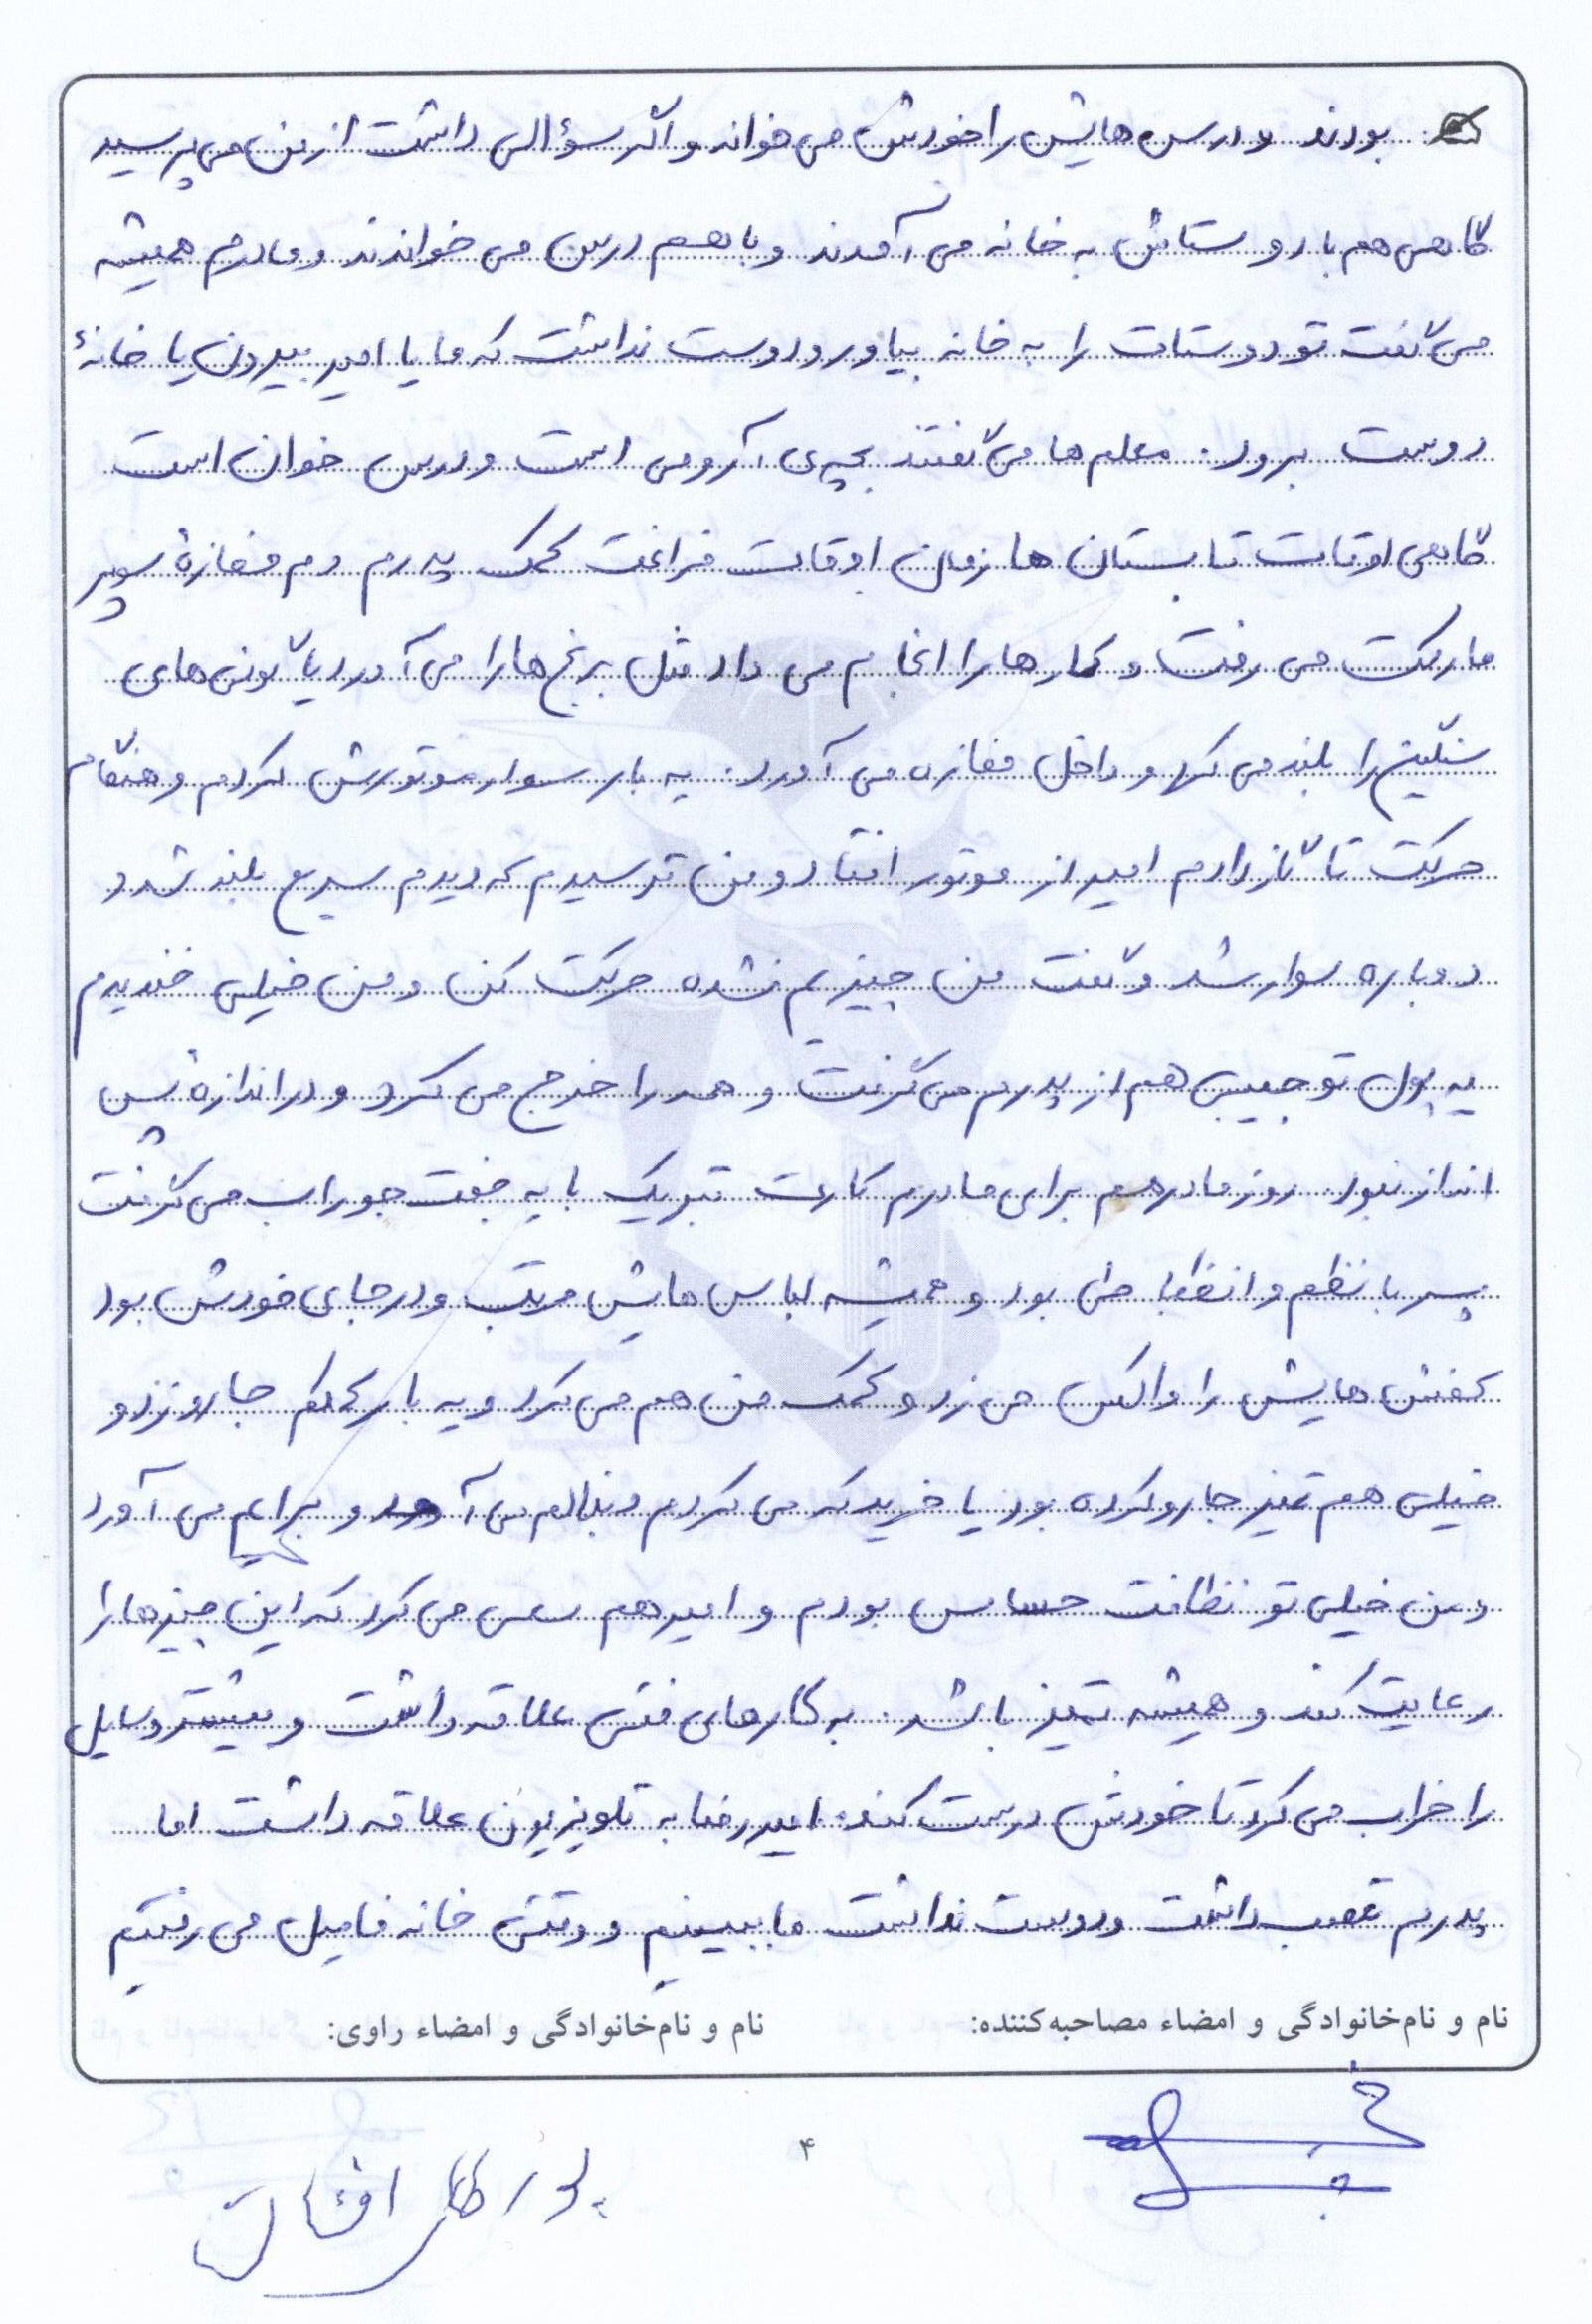 بودند و درس هایش را خودش می خواند و اگر سؤالی داشت از من می پرسید
گاهی هم با دوستاش به خانه می آمدند و با هم درس می خواندند و مادرم همیشه
می گفت تو دوستات را به خانه بیاور و دوست نداشت که ما یا امیر بیرون یا خانهٔ
دوست برود. معلم ها می گفتند بچه ی آرومی است و درس خوان است
گاهی اوقات تابستان ها زمان اوقات فراغت کمک پدرم دم مغازهٔ سوپر
مارکت می رفت و کارها را انجام می داد مثل برنج ها را می آورد یا گونی های
سنگین را بلند می کرد و داخل مغازه می آورد. یه بار سوار موتورش کردم و هنگام
حرکت تا گاز دادم امیر از موتور افتاد و من ترسیدم که دیدم سریع بلند شد و
دوباره سوار شد و گفت من چیزیم نشده حرکت کن و من خیلی خندیدم
یه پول تو جیبی هم از پدرم می گرفت و همه را خرج می کرد و در اندازهٔ پس
انداز نبود. روز مادر هم برای مادرم کارت تبریک با یه جفت جوراب می گرفت
پسر با نظم و انضباطی بود و همیشه لباس هایش مرتب و در جای خودش بود
کفش هایش را واکس می زد و کمک من هم می کرد و یه بار کمکم جارو زد و
خیلی هم تمیز جارو کرده بود یا خرید که می کردم دنبالم می آمد و برایم می آورد
و من خیلی تو نظافت حساس بودم و امیر هم سعی می کرد که این چیزها را
رعایت کند و همیشه تمیز باشد. به کارهای فنی علاقه داشت و بیشتر وسایل
را خراب می کرد تا خودش درست کند. امیررضا به تلویزیون علاقه داشت اما
پدرم تعصب داشت و دوست نداشت ما ببینیم و وقتی خانه فامیل می رفتیم
نام و نام‌خانوادگی و امضاء مصاحبه‌کننده: نام و نام‌خانوادگی و امضاء راوی:
۴